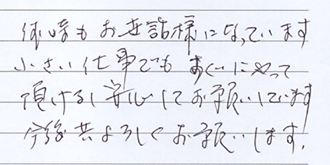 何時もお世話様になっています
小さい仕事でもすぐにやって
頂けるし安心してお願いしています
今後共よろしくお願いします。